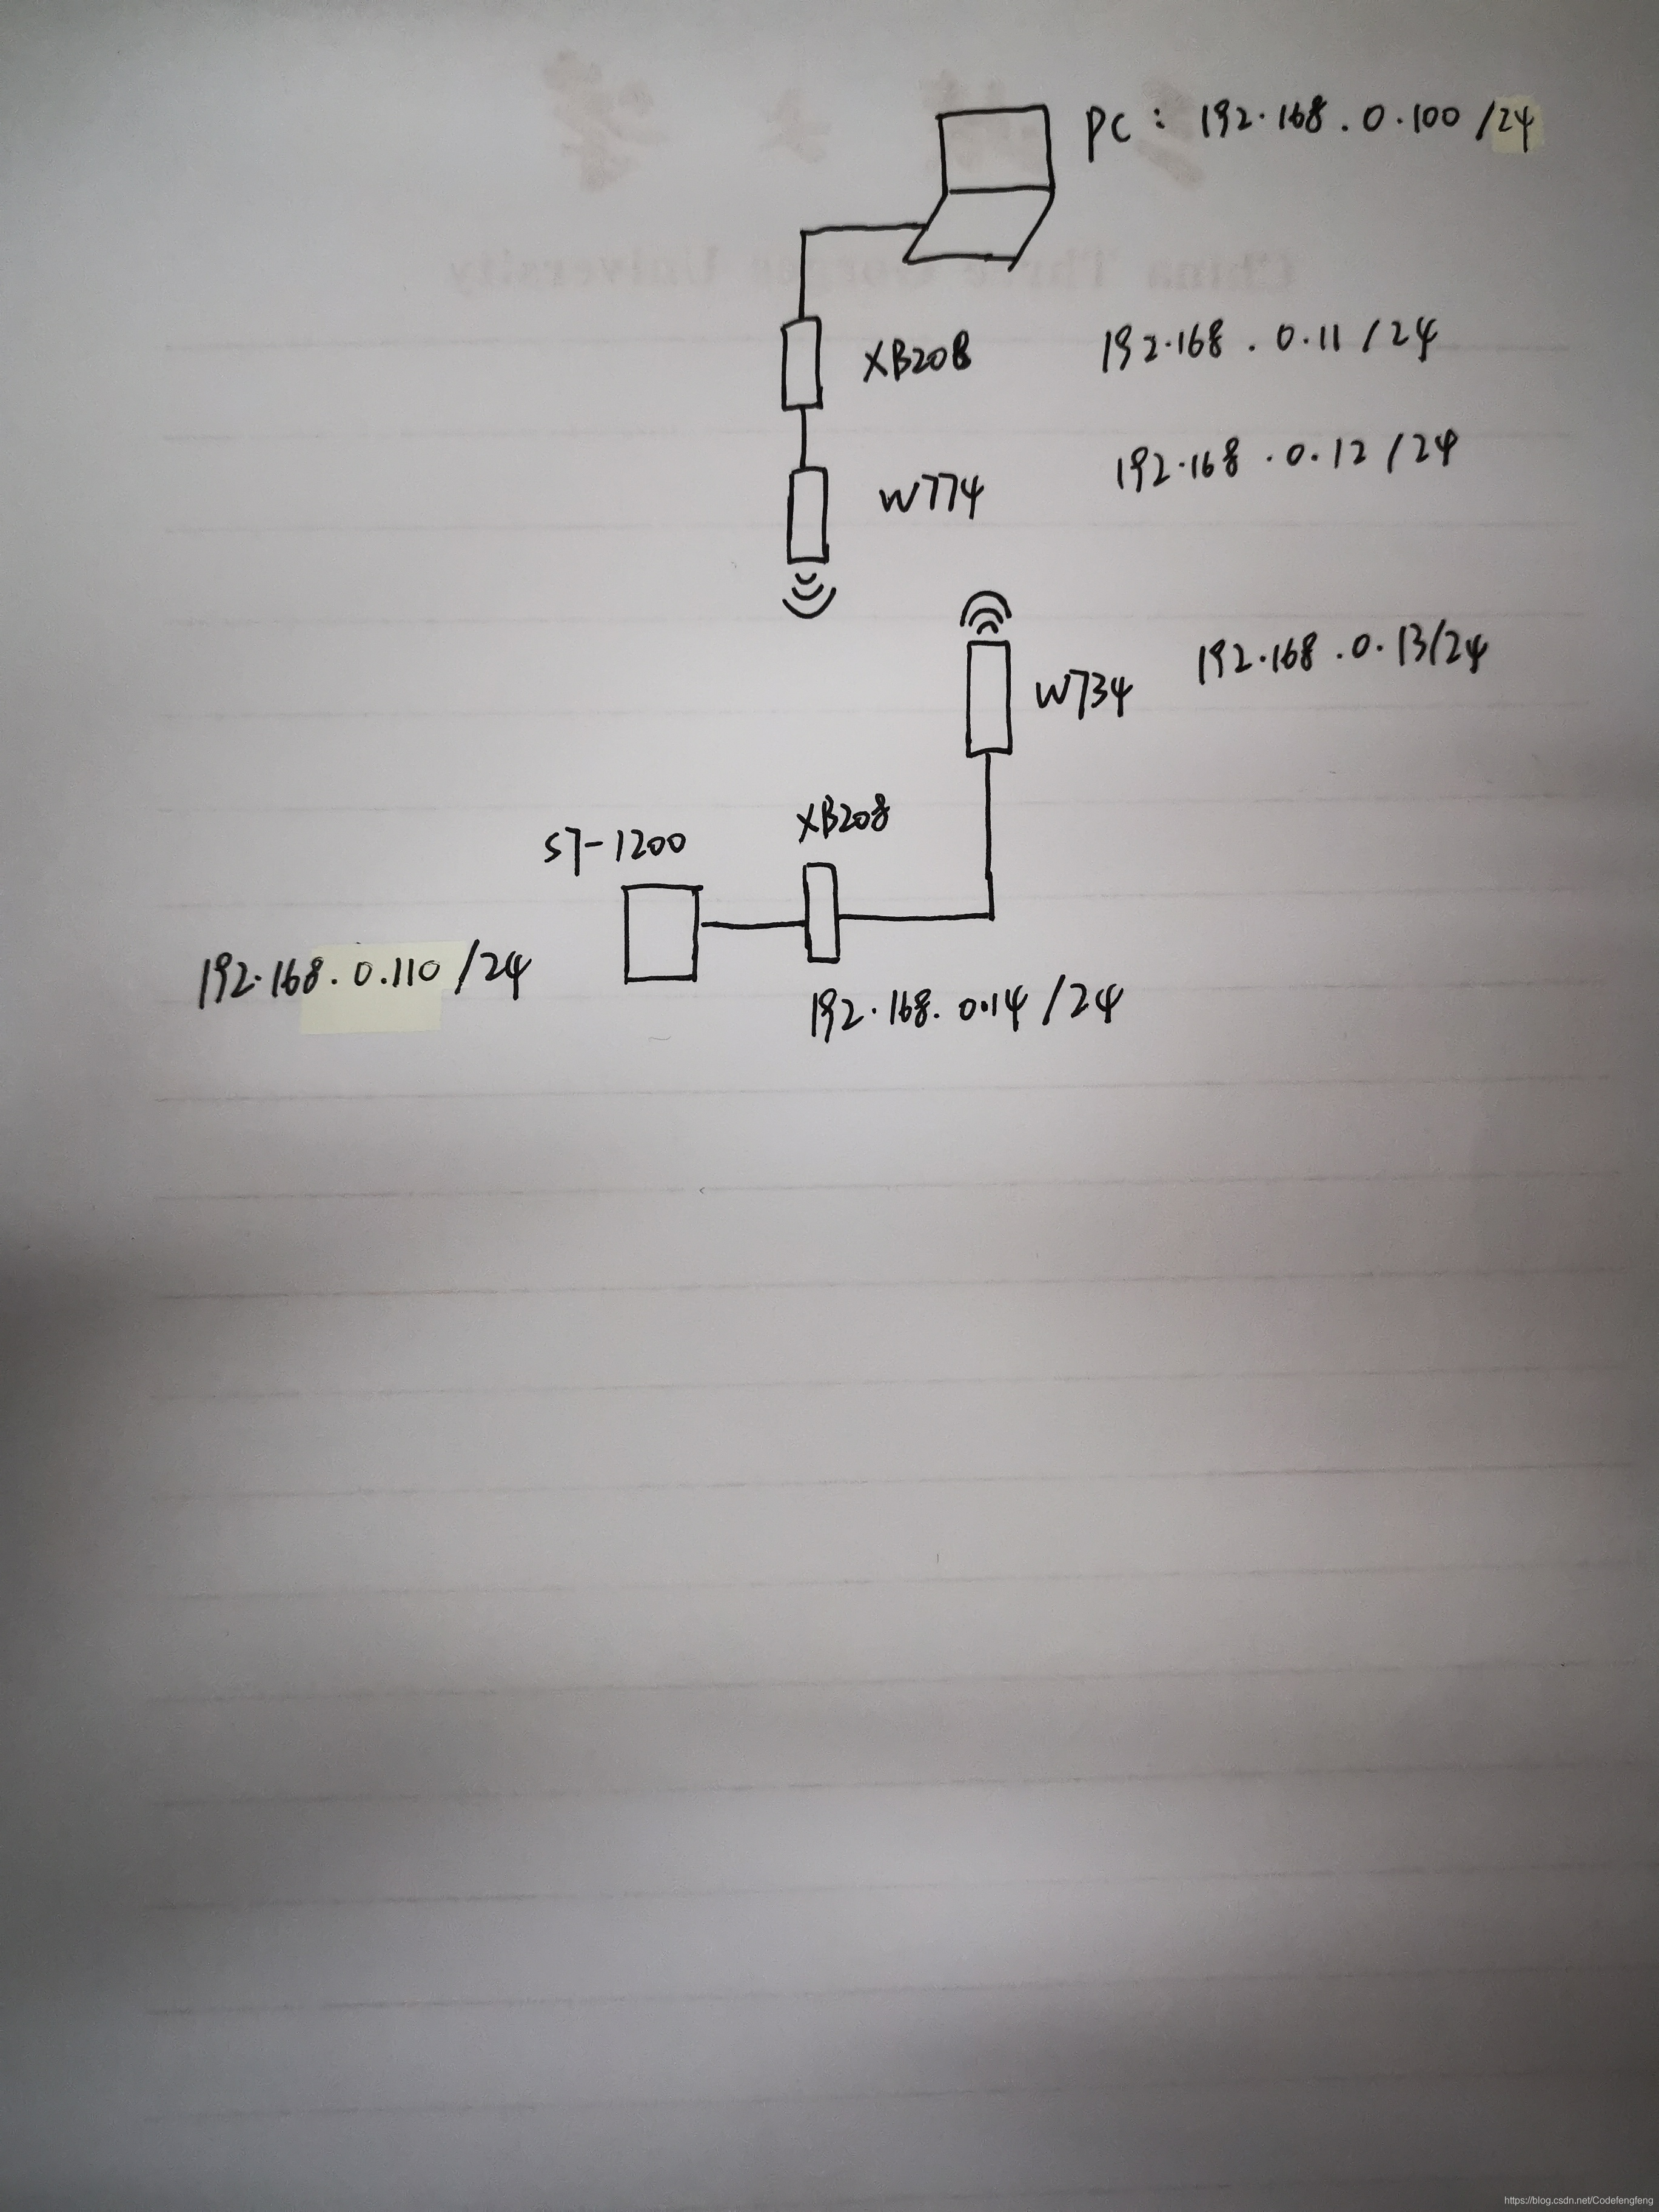 PC : 192.168.0.100/24
XB208 192.168.0.11/24
W774 192.168.0.12/24
W734 192.168.0.13/24
XB208
S7-1200
192.168.0.110/24
192.168.0.14/24
China Three Gorges University
https://blog.csdn.net/Codefengfeng